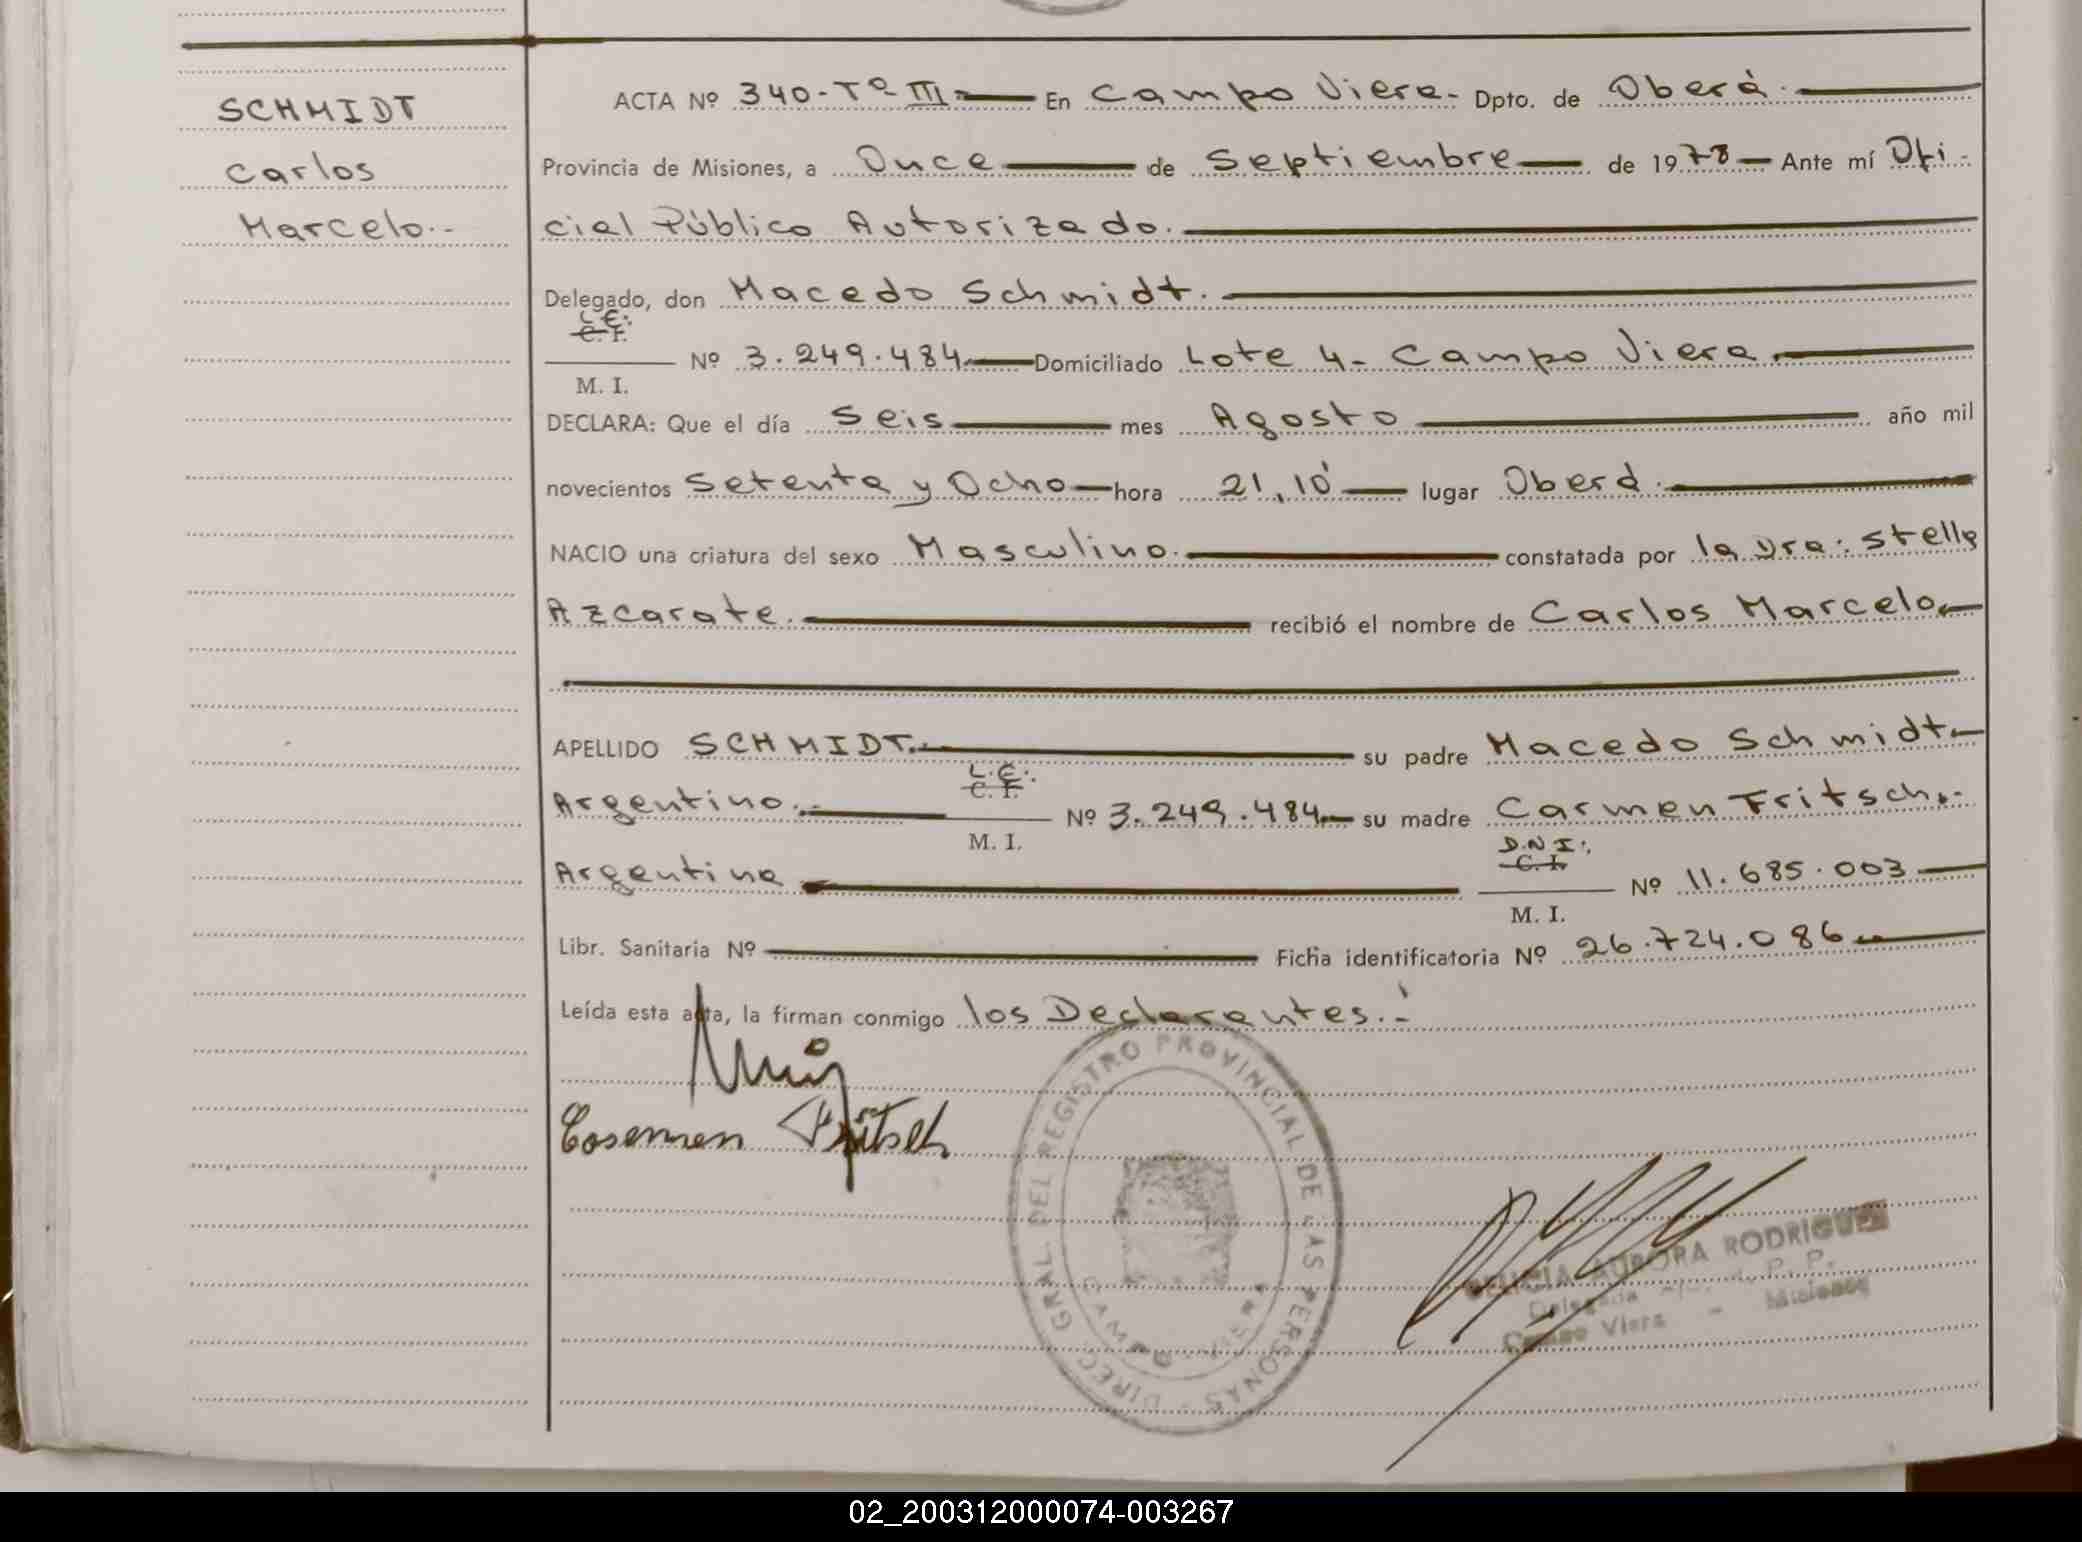 SCHMIDT
Carlos
Marcelo.-
ACTA Nº 340-Tº III- En Campo Viera- Dpto. de Oberá.
Provincia de Misiones, a Once de Septiembre de 1978 Ante mí Ofi-
cial Público Autorizado.
Delegado, don Macedo Schmidt.
L.E.:
C. I.
M. I.
Nº 3.249.484 Domiciliado Lote 4- Campo Viera
DECLARA: Que el día Seis mes Agosto año mil
novecientos Setenta y Ocho hora 21,10' lugar Oberá.
NACIO una criatura del sexo Masculino. constatada por la Dra: Stella
Azcarate. recibió el nombre de Carlos Marcelo.
APELLIDO SCHMIDT. su padre Macedo Schmidt.
Argentino.- L.E.: C. I. M. I. Nº 3.249.484 su madre Carmen Fritsch.-
Argentina D.N.I.: C. I. M. I. Nº 11.685.003
Libr. Sanitaria Nº Ficha identificatoria Nº 26.724.086
Leída esta acta, la firman conmigo los Declarantes.-
Carmen Fritsch
DIREC. GRAL. DEL REGISTRO PROVINCIAL DE LAS PERSONAS
CAMPO VIERA
AURORA RODRIGUEZ
Delegada P. P.
Campo Viera - Misiones
02_200312000074-003267